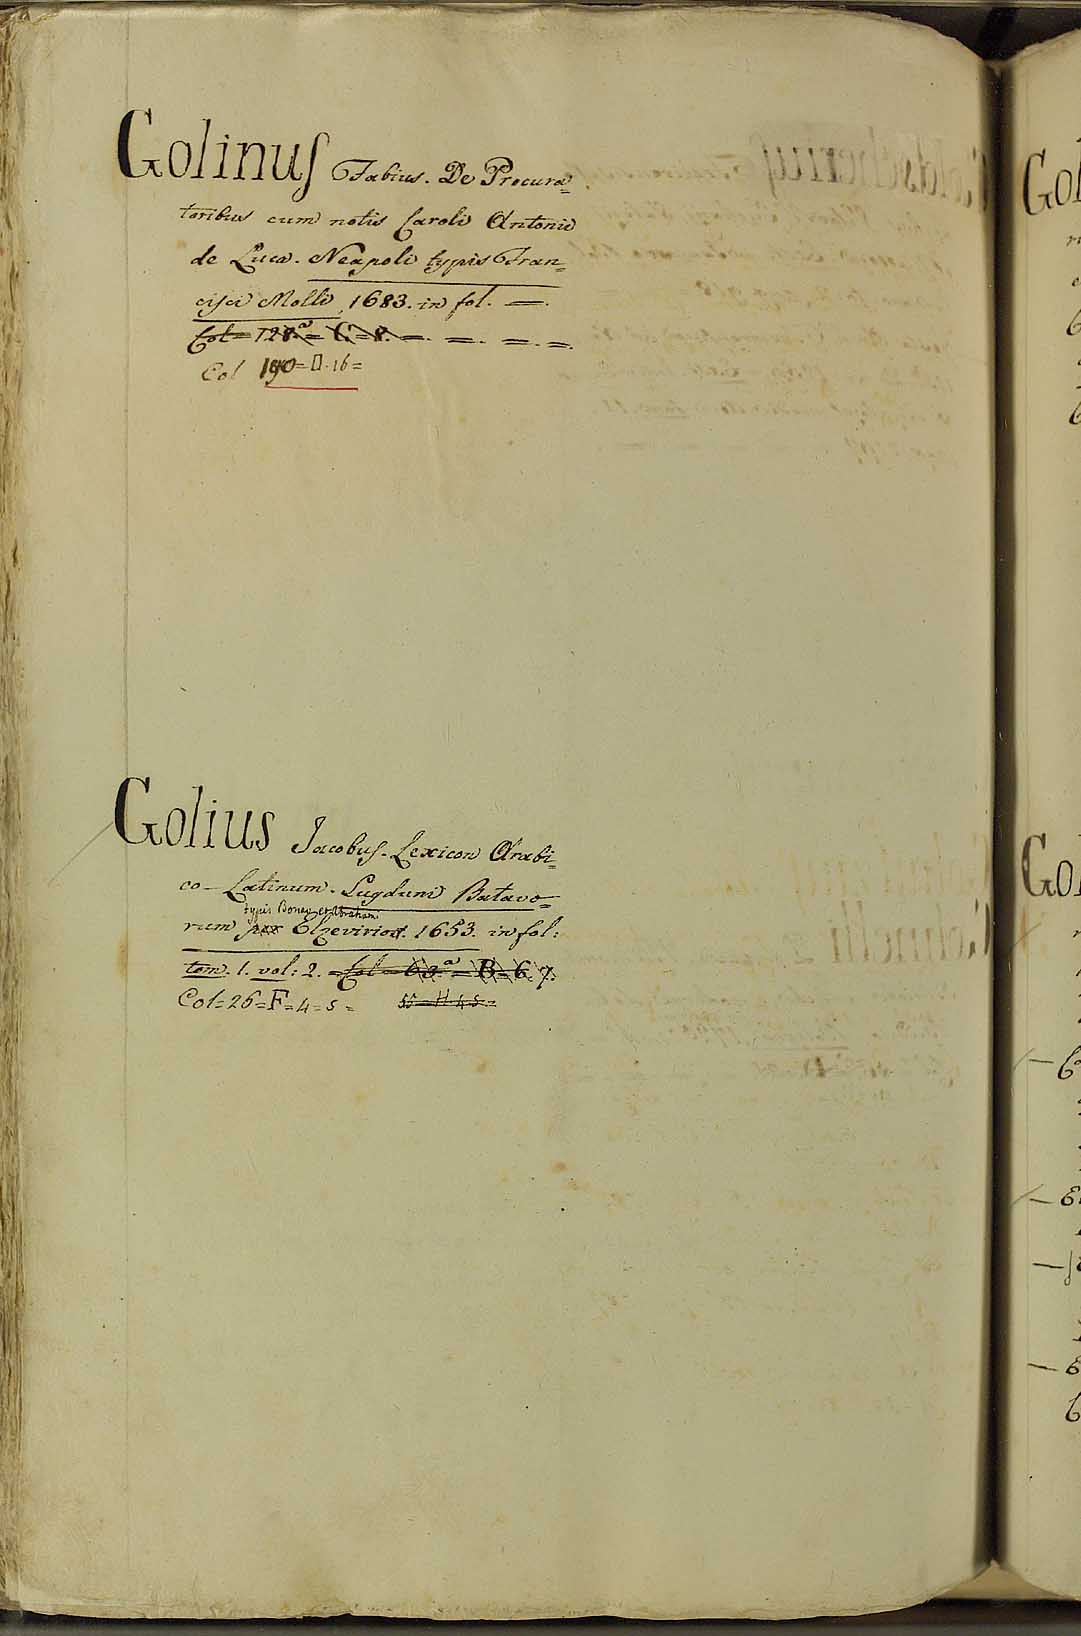 Golinus Fabius. De Procura=
toribus cum notis Caroli Antonii
de Luca. Neapoli typis Fran=
cisci Molli 1683. in fol. =.
Col= 128.ª= C.= 8. =. =. =. =.
Col 190= D. 16=
Golius Jacobus. Lexicon Arabi=
co-Latinum. Lugduni Batavo=
typis Bonav. et Abraham
rum Elzevirior. 1653. in fol:
tom. 1. vol: 2. Col= 63.ª= B= 6. 7.
Col=26=F=4=5= 55=H=4=5=
Gol
Gol